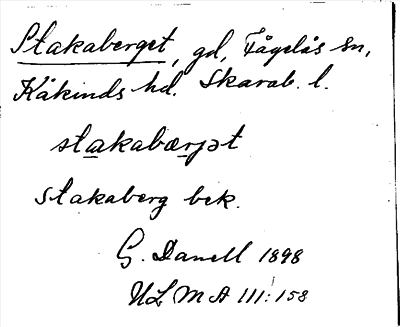 Stakaberget, gd, Fågelås sn,
Kåkinds hd. Skarab. l.
stakabærjət
stakaberg bek.
G. Danell 1898
ULMA 111:158